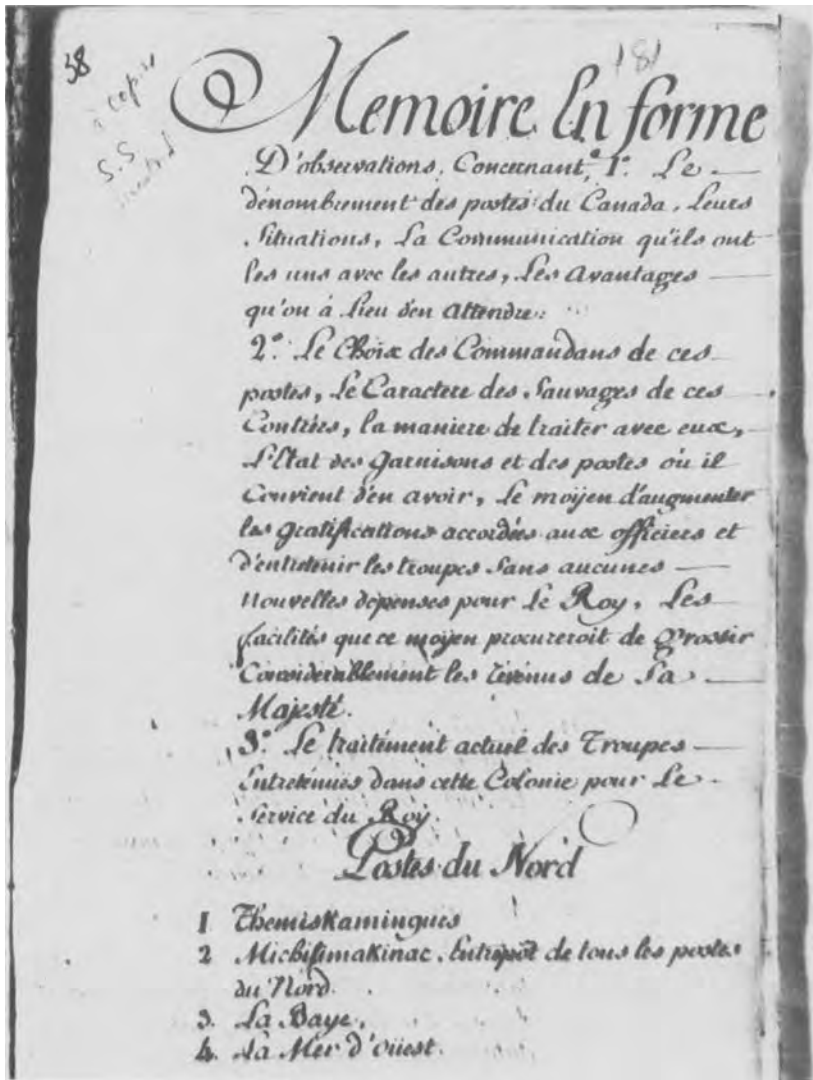 38
181
à copier
S.S
Memoire En forme
D'observations, Concernant, 1.° Le
dénombrement des postes du Canada, Leurs
Situations, La Communication qu'ils ont
les uns avec les autres, Les Avantages
qu'on à Lieu d'en Attendre.
2.° Le Choix des Commandans de ces
postes, Le Caractere des Sauvages de ces
Contrées, la maniere de traiter avec eux,
L'Etat des Garnisons et des postes où il
Convient d'en avoir, Le moÿen d'augmenter
les gratifications accordées aux officiers et
d'entretenir les troupes Sans aucunes
Nouvelles dépenses pour Le Roy, Les
facilités que ce moyen procureroit de Grossir
Considerablement les revenus de Sa
Majesté.
3.° Le traitement actuel des Troupes
Entretenues dans cette Colonie pour Le
Service du Roy.
Postes du Nord
1 Themiskamingues
2 Michilimakinac, Entrepôt de tous les postes
du Nord.
3. La Baye,
4. La Mer d'Oüest.